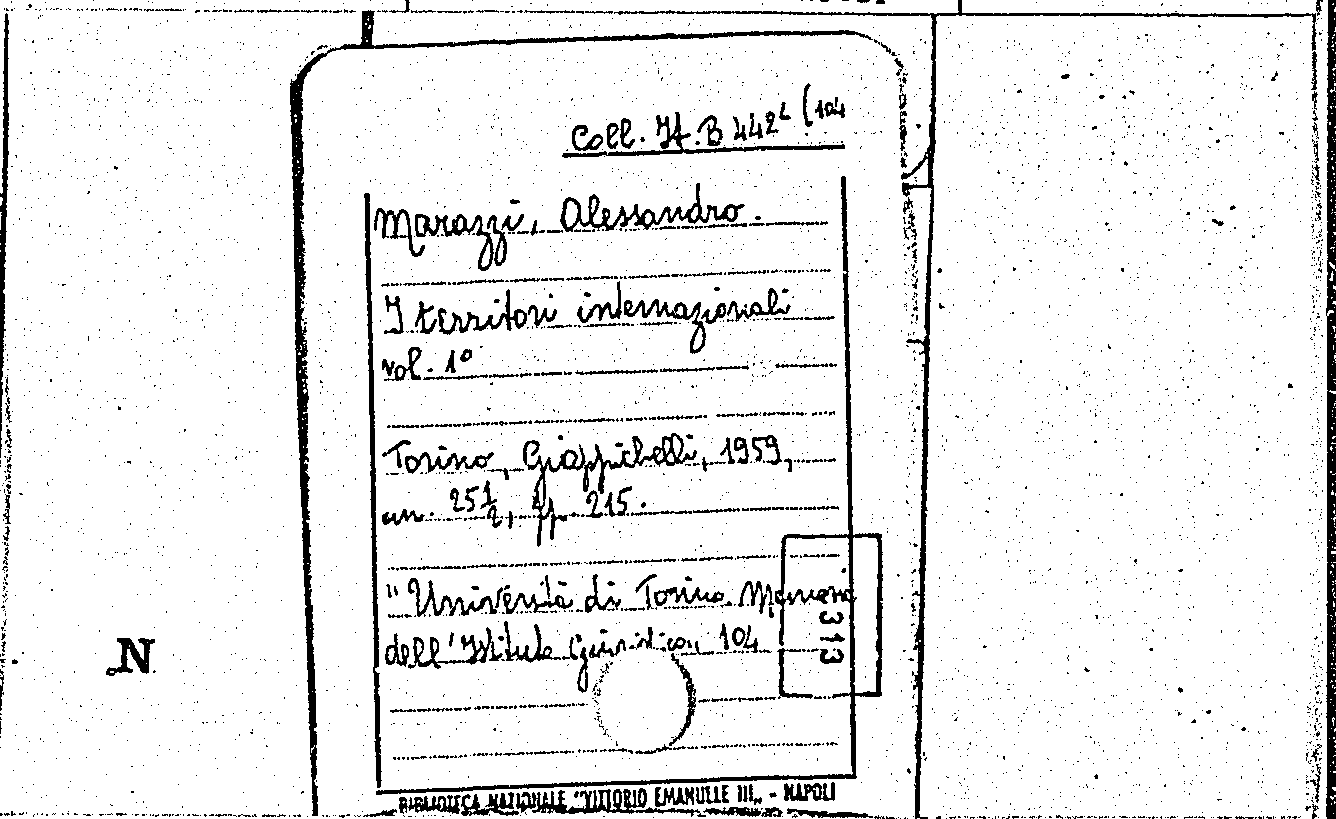 Coll. It. B 442⁴ (104
Marazzi, Alessandro.
I territori internazionali
vol. 1º
Torino, Giappichelli, 1959,
cm. 25 1/2, pp. 215.
"Università di Torino Memorie
dell'Istituto Giuridico,, 104
313
N
BIBLIOTECA NAZIONALE "VITTORIO EMANUELE III„ - NAPOLI